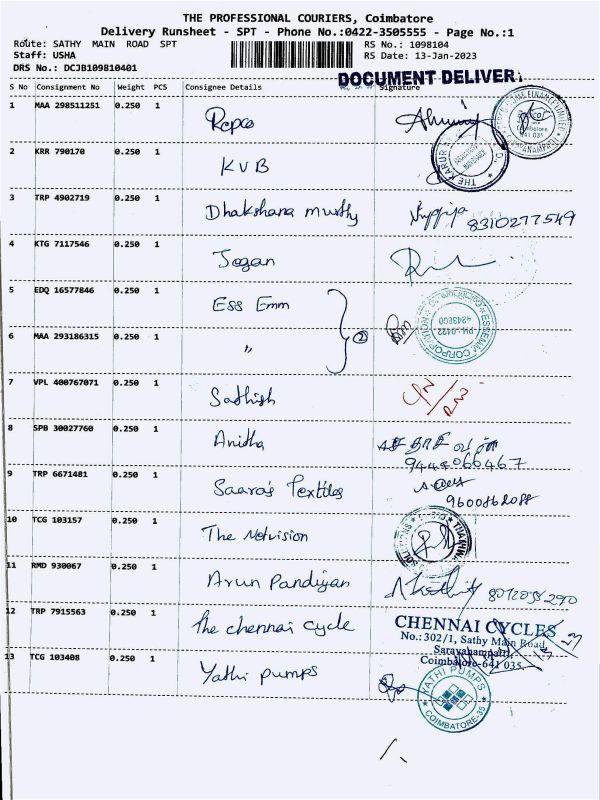 THE PROFESSIONAL COURIERS, Coimbatore
Delivery Runsheet - SPT - Phone No.:0422-3505555 - Page No.:1
Route: SATHY MAIN ROAD SPT
RS No.: 1098104
Staff: USHA
RS Date: 13-Jan-2023
DRS No.: DCJB109810401
DOCUMENT DELIVERY
S No Consignment No Weight PCS Consignee Details Signature
1 MAA 298511251 0.250 1 Repco
2 KRR 790170 0.250 1 KVB
THE KARUR
3 TRP 4902719 0.250 1 Dhakshana murthy 8310277549
4 KTG 7117546 0.250 1 Jogan
5 EDQ 16577846 0.250 1 Ess Emm
6 MAA 293186315 0.250 1 " 2
ESSEMM CORPORATION
PH: 0422
7 VPL 400767071 0.250 1 Sathish
8 SPB 30027760 0.250 1 Anitha
9444066467
9 TRP 6671481 0.250 1 Saara's Textiles
9600862088
10 TCG 103157 0.250 1 The Netvision
11 RMD 930067 0.250 1 Arun Pandiyan
12 TRP 7915563 0.250 1 The chennai cycle
CHENNAI CYCLES
No.: 302/1, Sathy Main Road,
Saravanampatti,
Coimbatore-641 035.
13 TCG 103408 0.250 1 Yathi pumps
YATHI PUMPS
COIMBATORE-35